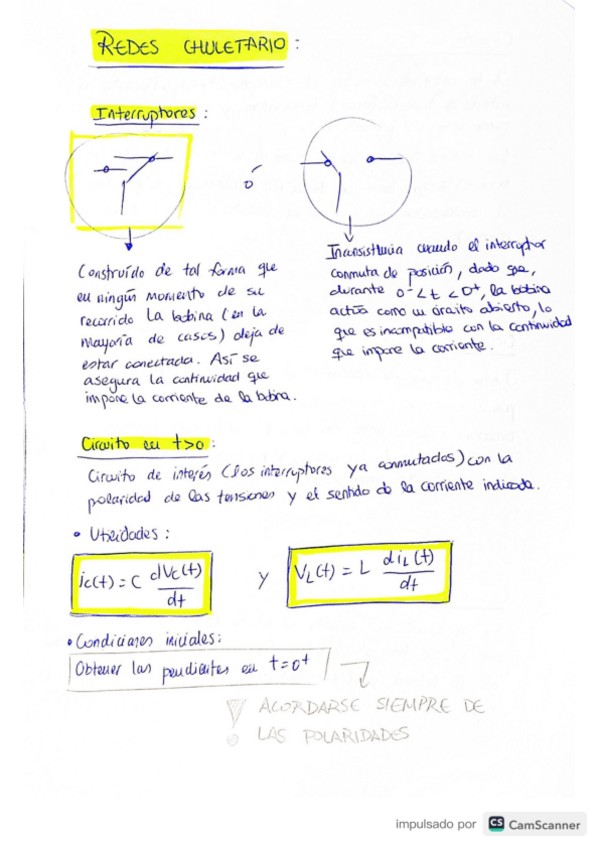 REDES CHULETARIO:
Interruptores:
ó
Construído de tal forma que
en ningún momento de su
recorrido la bobina (en la
mayoría de casos) deja de
estar conectada. Así se
asegura la continuidad que
impone la corriente de la bobina.
Inconsistencia cuando el interruptor
conmuta de posición, dado que,
durante 0⁻<t<0⁺, la bobina
actúa como un circuito abierto, lo
que es incompatible con la continuidad
que impone la corriente.
Circuito en t>0:
Circuito de interés (los interruptores ya conmutados) con la
polaridad de las tensiones y el sentido de la corriente indicada.
• Utilidades:
ic(t) = C dVc(t)/dt y VL(t) = L diL(t)/dt
• Condiciones iniciales:
Obtener las pendientes en t=0⁺
! ACORDARSE SIEMPRE DE
LAS POLARIDADES
impulsado por CS CamScanner